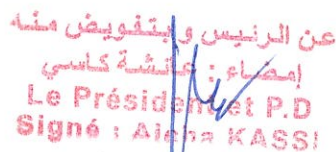 عن الرئيس وبتفويض منه
إمضاء : عائشة كاسي
Le Président et P.D
Signé : Aicha KASSI